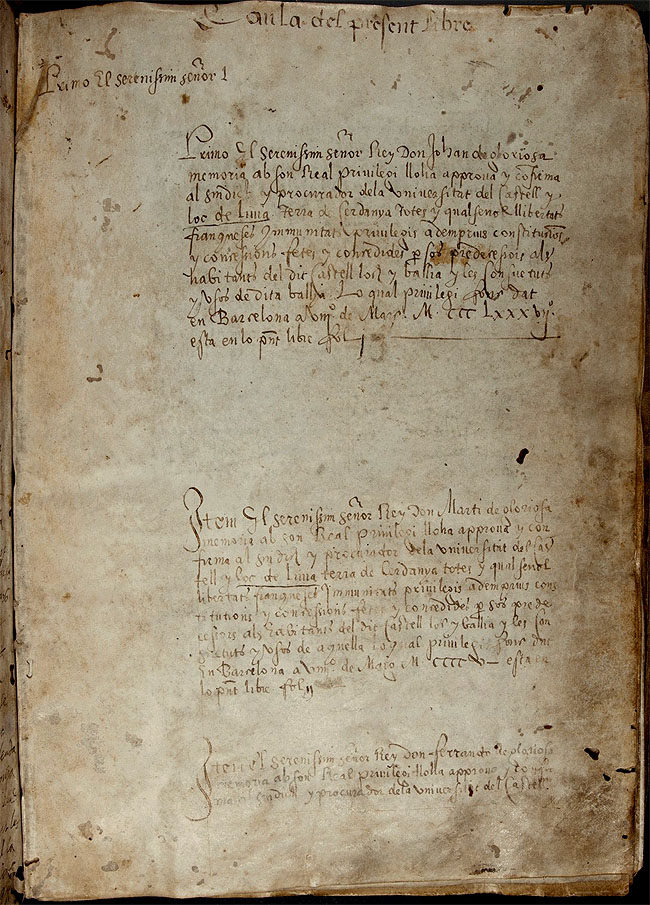 Taula del present libre
Primo El serenissim señor
Primo El serenissim señor Rey Don Johan de gloriosa
memoria ab son Real Privilegi lloha approva y cōfirma
al sindich y procurador dela universitat del Castell y
loc de Livia terra de Cerdanya totes y qualsevol llibertats
franqueses Immunitats privilegis ademprius constitutions
y concessions fetes y concedides p sos predecessors als
habitants del dit Castell loch y ballia y les consuetuts
y Usos de dita ballia. Lo qual privilegi fonc dat
en Barcelona a de Mars M. CCC LXXXVII
esta en lo pñt libre fol
Item El serenissim señor Rey Don Marti de gloriosa
memoria ab son Real Privilegi lloha approva y con
firma al sindich y procurador dela universitat del Cas
tell y loc de Livia terra de Cerdanya totes y qualsevol
libertats franqueses Immunitats privilegis ademprius cons
titutions y concessions fetes y concedides p sos prede
cessors als habitants del dit Castell loc y ballia y les con
suetuts y Usos de aquella lo qual privilegi fonc dat
en Barcelona a de M CCCC esta en
lo pñt libre fol
Item El serenissim señor Rey don ferrando de gloriosa
memoria ab son Real Privilegi lloha approva y confir
ma al sindich y procurador dela universitat del Castell